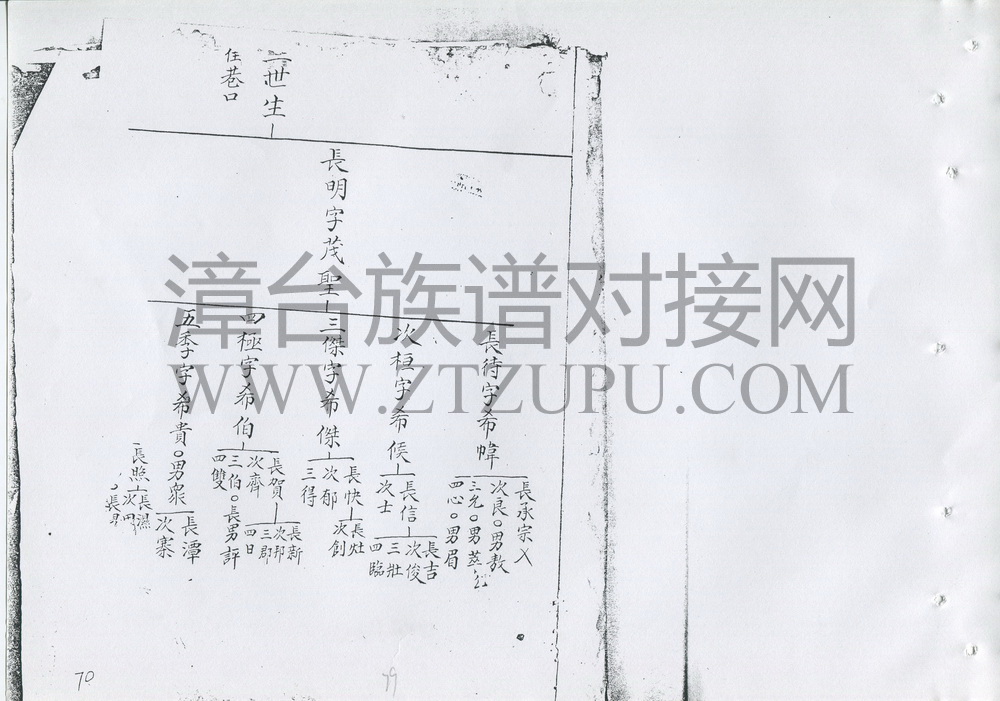 二世生
住巷口
長明字茂聖
長待字希幃
次桓字希侯
三傑字希傑
四極字希伯
五季字希貴○男眾
長承宗入
次良○男敖
三允○男
四心○男眉
長信
次士
長吉
次俊
三壯
四臨
長快
次郁
三得
長灶
次創
長賀
次齊
三伯○長男評
四雙
長新
次邦
三郡
四日
長潭
次寨
長熙
長濕
次
70
79
漳台族谱对接网
WWW.ZTZUPU.COM